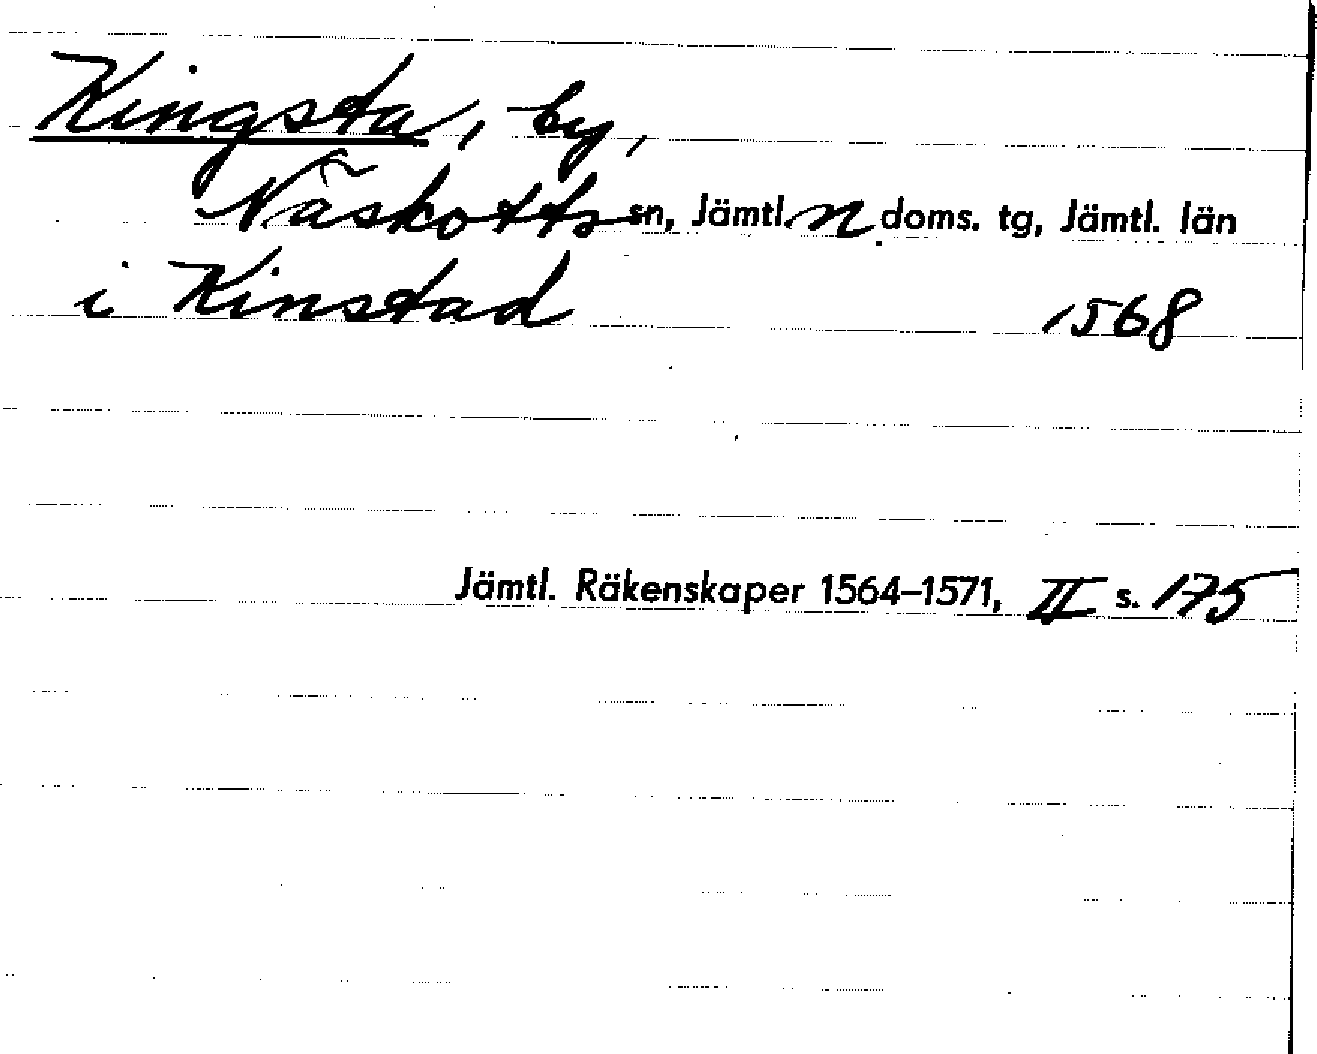 Kingsta, by,
Näskotts sn, Jämtl. n doms. tg, Jämtl. län
i Kinstad 1568
Jämtl. Räkenskaper 1564–1571, II s. 175